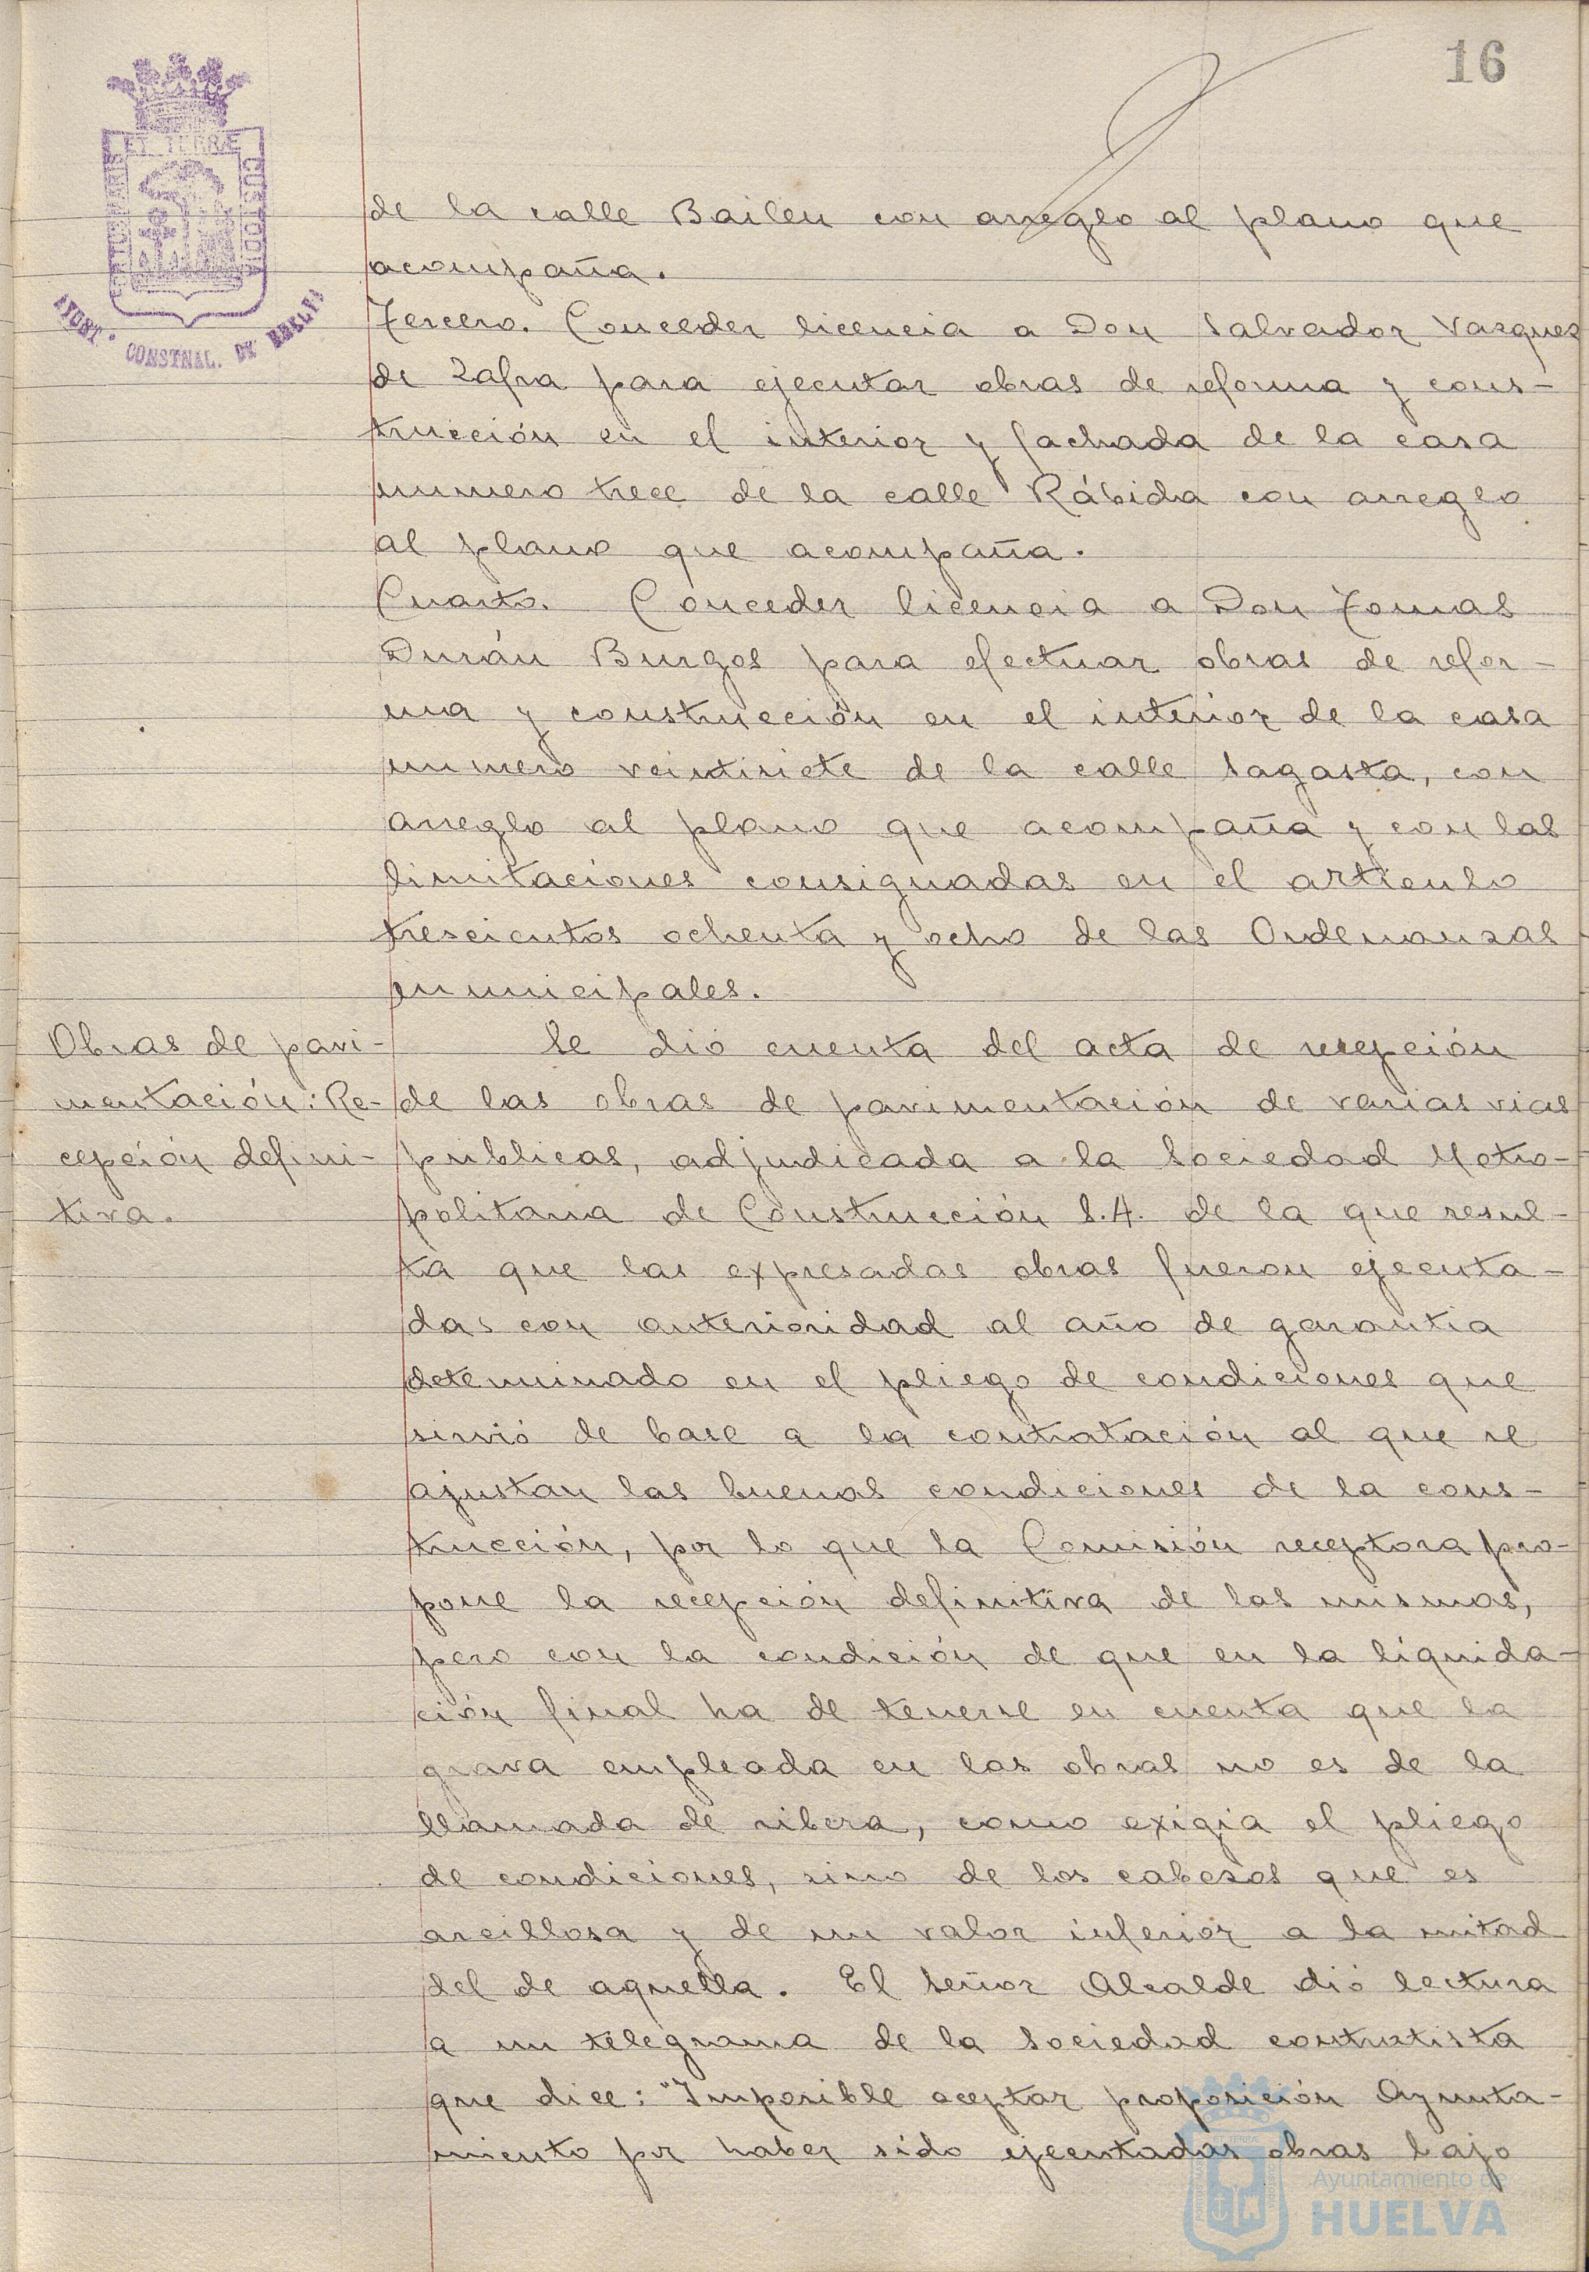 16
PORTUS MARIS ET TERRÆ CUSTODIA
AYUNT. CONSTNAL. DE HUELVA
de la calle Bailen con arreglo al plano que
acompaña.
Tercero. Conceder licencia a Don Salvador Vazquez
de Zafra para ejecutar obras de reforma y cons-
trucción en el interior y fachada de la casa
numero trece de la calle Rábida con arreglo
al plano que acompaña.
Cuarto. Conceder licencia a Don Tomas
Durán Burgos para efectuar obras de refor-
ma y construcción en el interior de la casa
numero veintisiete de la calle Sagasta, con
arreglo al plano que acompaña y con las
limitaciones consignadas en el articulo
trescientos ochenta y ocho de las Ordenanzas
municipales.
Obras de pavi-
mentación: Re-
cepción defini-
tiva.
Se dió cuenta del acta de recepción
de las obras de pavimentación de varias vias
publicas, adjudicada a la Sociedad Metro-
politana de Construcción S.A. de la que resul-
ta que las expresadas obras fueron ejecuta-
das con anterioridad al año de garantia
determinado en el pliego de condiciones que
sirvió de base a la contratación al que se
ajustan las buenas condiciones de la cons-
trucción, por lo que la Comisión receptora pro-
pone la recepción definitiva de las mismas,
pero con la condición de que en la liquida-
ción final ha de tenerse en cuenta que la
grava empleada en las obras no es de la
llamada de ribera, como exigia el pliego
de condiciones, sino de los cabezos que es
arcillosa y de un valor inferior a la mitad
del de aquella. El Señor Alcalde dió lectura
a un telegrama de la Sociedad contratista
que dice: "Imposible aceptar proposición Ayunta-
miento por haber sido ejecutadas obras bajo
Ayuntamiento de
HUELVA